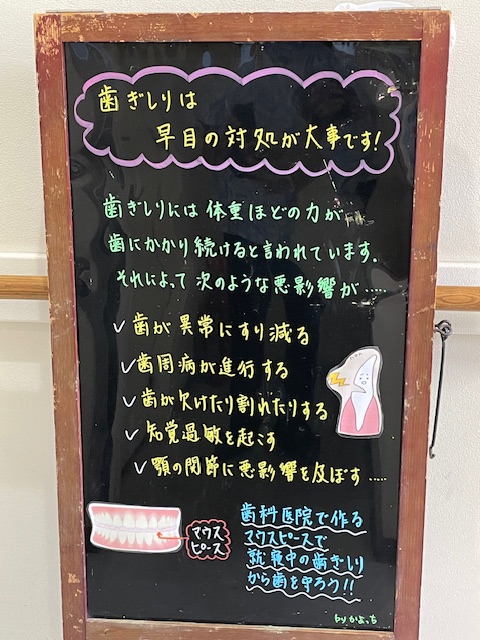 歯ぎしりは
早目の対処が大事です!
歯ぎしりには体重ほどの力が
歯にかかり続けると言われています.
それによって次のような悪影響が.....
✓歯が異常にすり減る
✓歯周病が進行する
✓歯が欠けたり割れたりする
✓知覚過敏を起こす
✓顎の関節に悪影響を及ぼす.....
マウス
ピース
歯科医院で作る
マウスピースで
就寝中の歯ぎしり
から歯を守ろう!!
by かよっち